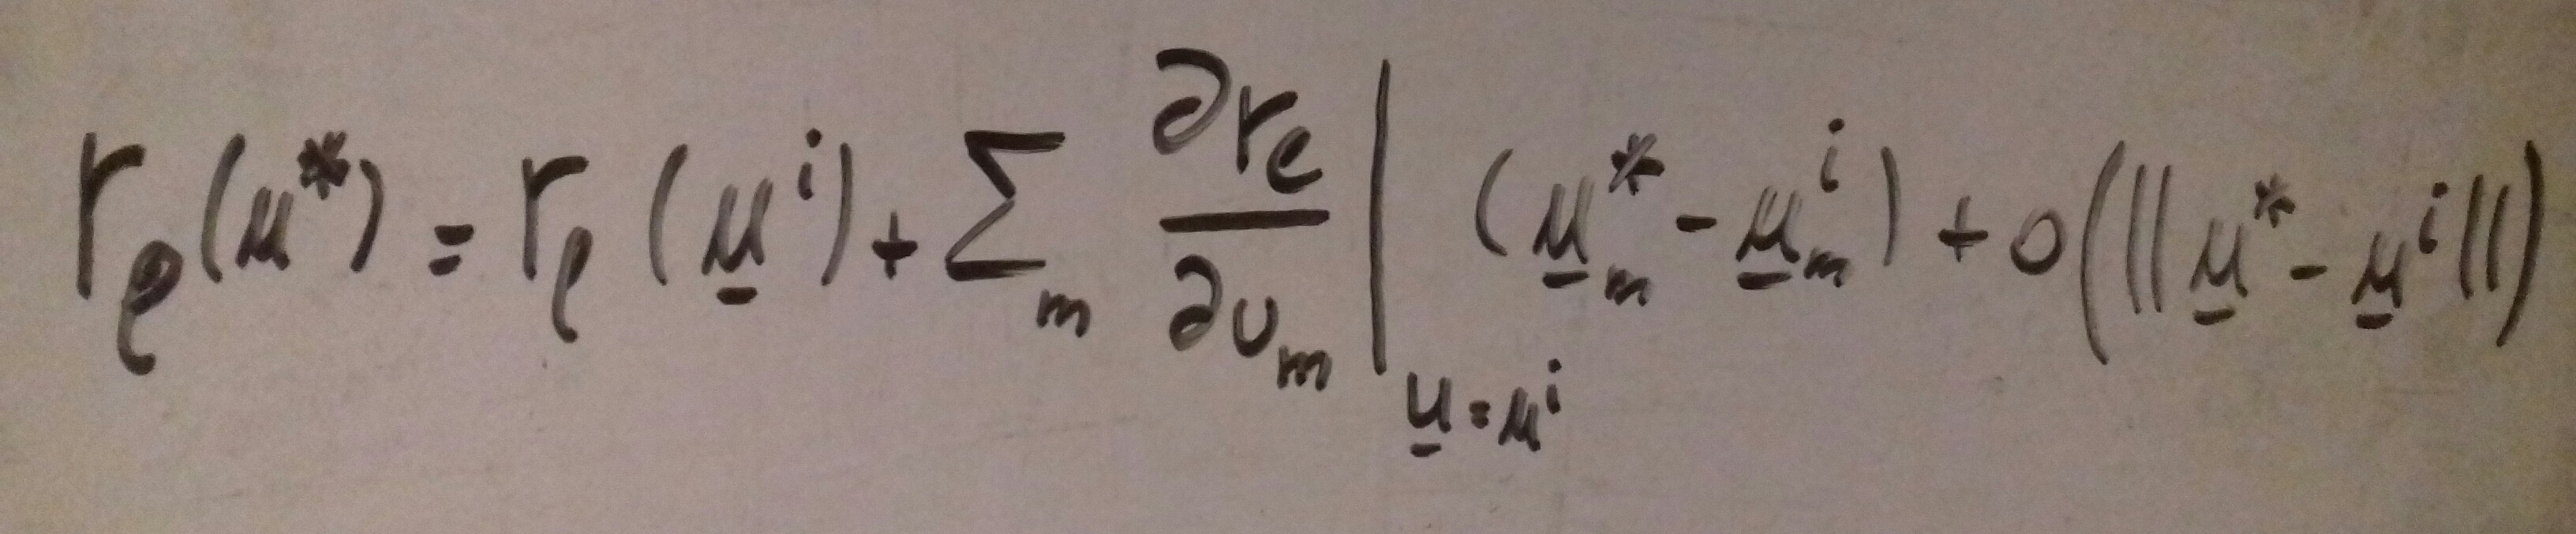 $r_\ell(u^*) = r_\ell(\underline{u}^i) + \sum_m \left. \frac{\partial r_\ell}{\partial u_m} \right|_{\underline{u} = u^i} (\underline{u}_m^* - \underline{u}_m^i) + o(\|\underline{u}^* - \underline{u}^i\|)$